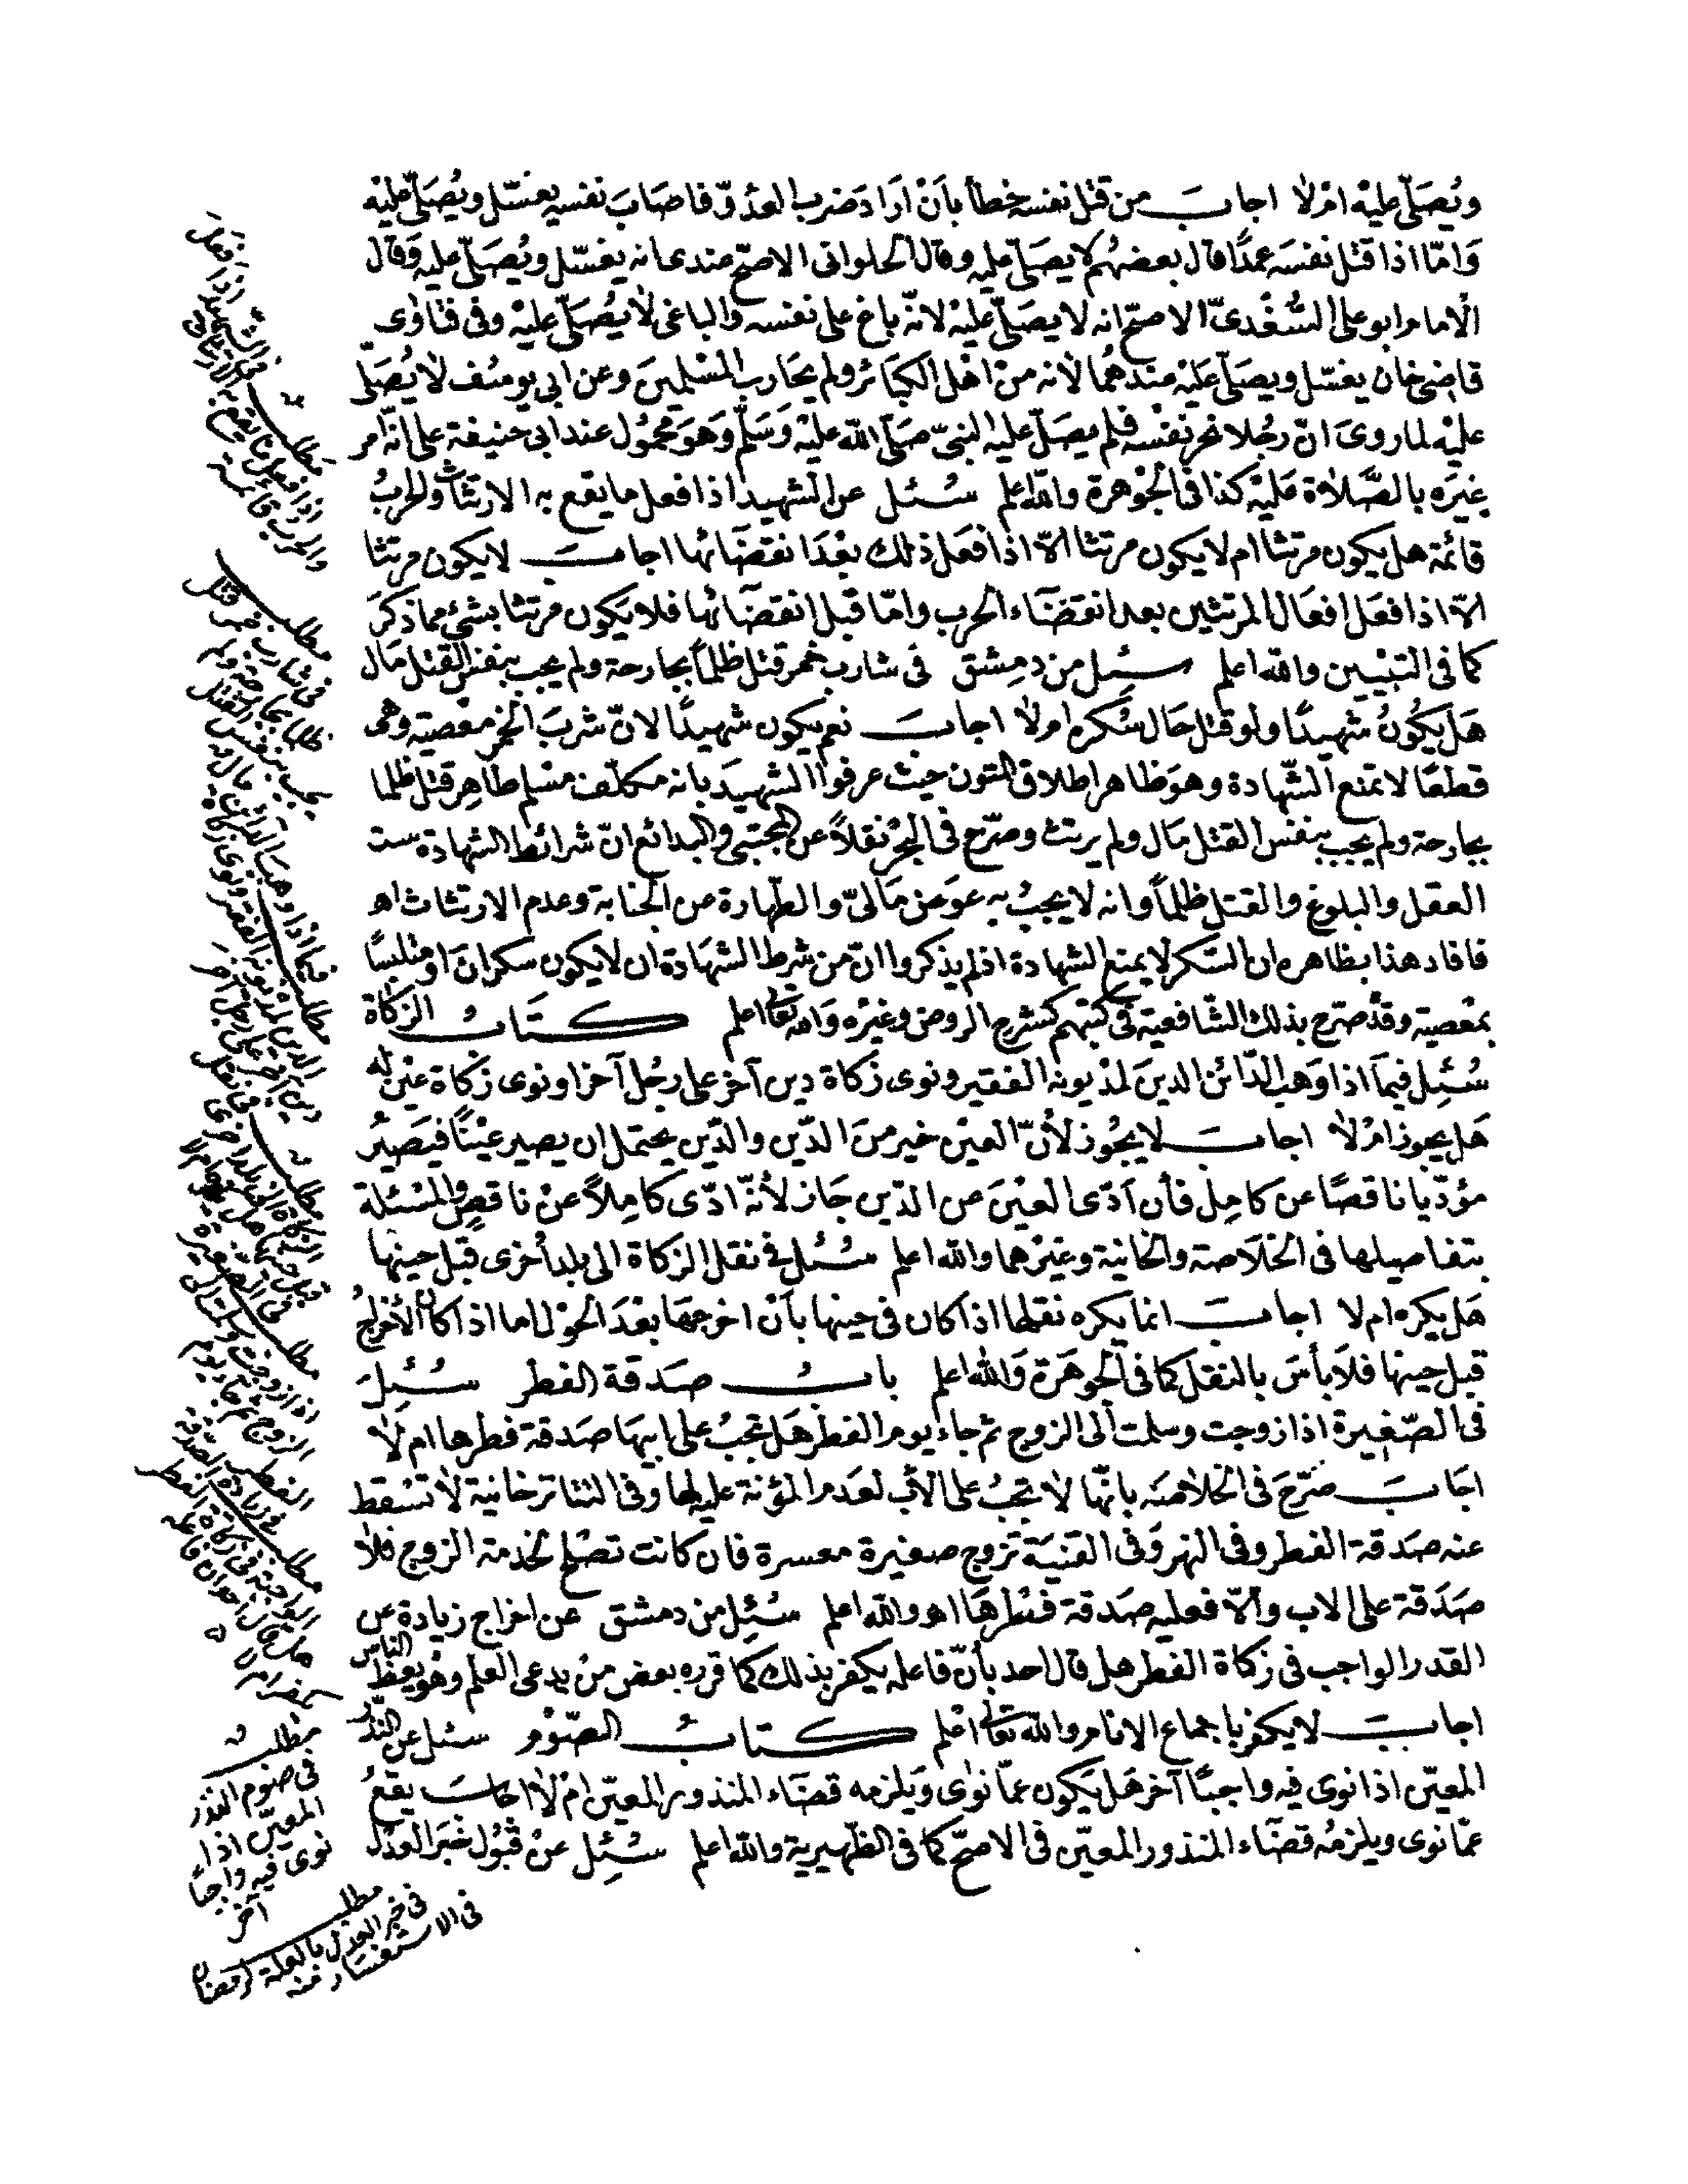 ويُصَلّى عليْه امْ لا اجابَ من قتل نفسه خطأ بأن ارادَ ضرب العدُوّ فاصَابَ نفسه يغسّل ويُصَلّى عليْه
وَامّا اذا قتل نفسَه عمدًا قال بعضهُم لا يصَلّى عليه وقال الحلوانى الاصحّ عندى انه يغسّل ويُصَلّى عليه وَقال
الامام ابو على السُّغْدىّ الاصحّ انه لا يصَلّى عليْه لانّه باغ على نفسه والباغى لا يُصَلّى عليْه وفى فتاوٰى
قاضى خان يغسّل ويصَلّى عليْه عندهُما لانه منْ اهْل الكبَائر ولم يحَارب المسْلمينَ وعن ابى يوسُف لا يُصَلّى
عليْه لما روىَ انّ رجُلا نحر نفْسَه فلم يصَلّ عليْه النبىّ صَلّى الله عليْه وَسَلّم وَهوَ محمُول عند ابى حنيفة على انّه امر
غيرَه بالصَّلاة عَليْه كذا فى الجوْهرة والله اعلم سُئل عن الشهيد اذا فعل ما يقع به الارتثاث والحربُ
قائمة هل يكون مرتثا ام لا يكون مرتثا الاّ اذا فعَل ذلك بعْدَ انقضَائها اجابَ لا يكون مرتثا
الاّ اذا فعَل افعَال المرتثين بعد انقضَاء الحرب وامّا قبل انقضَائها فلا يَكون مرتثا بشئ مما ذكرَ
كما فى التبْيين والله اعلم سئِل من دمِشق فى شارب خمر قتل ظلمًا بجارحة ولم يجب بنفس القتل مَال
هَل يَكُونُ شهيدًا ولو قتل حَال سُكره ام لا اجابَ نعم يكون شهيدًا لانّ شربَ الخمر معْصية وهى
قطعًا لا تمنع الشّهادة وهوَ ظاهر اطلاق المتون حيْث عرفوا الشهيدَ بانه مكلّف مسْلم طاهِر قتل ظلما
بجارحة ولم يجب بنفْس القتل مَال ولم يرتث وصرّح فى البحْر نقلاً عن المجتبى والبدائع انّ شرائط الشهادة ست
العقل والبلوغ والقتل ظلمًا وانه لا يجبُ به عوَض مَالىّ والطّهارة عن الجنابة وعدم الارتثاث اهـ
فافاد هذا بظاهره ان السّكر لا يمنع الشهادة اذ لم يذكروا انّ من شرط الشهَادة ان لا يكون سكرانَ او متلبسًا
بمعْصية وقدْ صرّح بذلك الشّافعية فى كتبهم كشرح الروض وغيْره وَالله تعالى اعلم كتَابُ الزكاة
سُئِل فيمَا اذا وَهب الدّائن الدينَ لمدْيونه الفقير ونوى زكاة دين آخر على رجُل آخر او نوى زكاة عيْن له
هَل يجوز امْ لا اجابَ لا يجُوز لأنّ العيْن خير منَ الدّين والدّين يحتمل ان يصير عيْنًا فيَصيْرُ
مؤدّيا ناقصًا عن كامِل فأن اَدّى العيْنَ عن الدّين جَاز لأنّه ادّى كامِلاً عنْ ناقصٍ والمسْئلة
بتفاصيلها فى الخلاَصة والخانية وغيْرهما والله اعلم سُئل فى نقل الزكاة الى بلد أخرى قبْل حينها
هَل يكره ام لا اجابَ انما يكره نقلها اذا كان فى حينها بأن اخرجهَا بعْدَ الحوْل اما اذا كان الأخراجُ
قبل حينها فلاَ بأسَ بالنقل كما فى الجوهَرة وَالله اعلم بابُ صَدقة الفطر سُئِلَ
فى الصّغِيرة اذا زوجت وسلمت الى الزوج ثم جاءَ يوم الفطر هَل تجبُ على ابيهَا صَدقة فطرها ام لا
اجَابَ صَرّحَ فى الخلاصَه بانّها لا تجبُ على الأب لعَدم المؤنة عليه لها وفى التتاترخانية لا تسْقط
عنه صَدقة الفطر وفى النهر وَفى القنيَة تزوج صغيرة معسرة فان كانت تصْلح لخدمة الزوج فلا
صَدَقة على الاب والّا فعليه صَدقة فطرهَا اهـ والله اعلم سُئِل من دمشق عن اخراج زيادة عن
القدر الواجب فى زكاة الفطر هل قال احد بأنّ فاعله يكفر بذلك كما قرره بعض منْ يدعى العلم وهو يعظ الناس
اجابَ لا يكفر باجماع الانام والله تعالى اعْلم كتابُ الصّوْم سئل عن النذْر
المعيّن اذا نوى فيه واجبًا آخر هَل يَكون عمّا نوٰى وَيلزمه قضَاء المنذور المعيّن امْ لا اجابَ يقعُ
عمّا نوى ويلزمُه قضآء المنذور المعيّن فى الاصحّ كما فى الظّهيرية والله اعلم سُئِل عنْ قبُول خبَر العدْل
مطلب
فى صوْم النذر
المعيّن اذا
نوى فيه واجبًا
آخر
مطلب
فى خبر العدْل بالعلة رمضان
فى الاستفسار منه